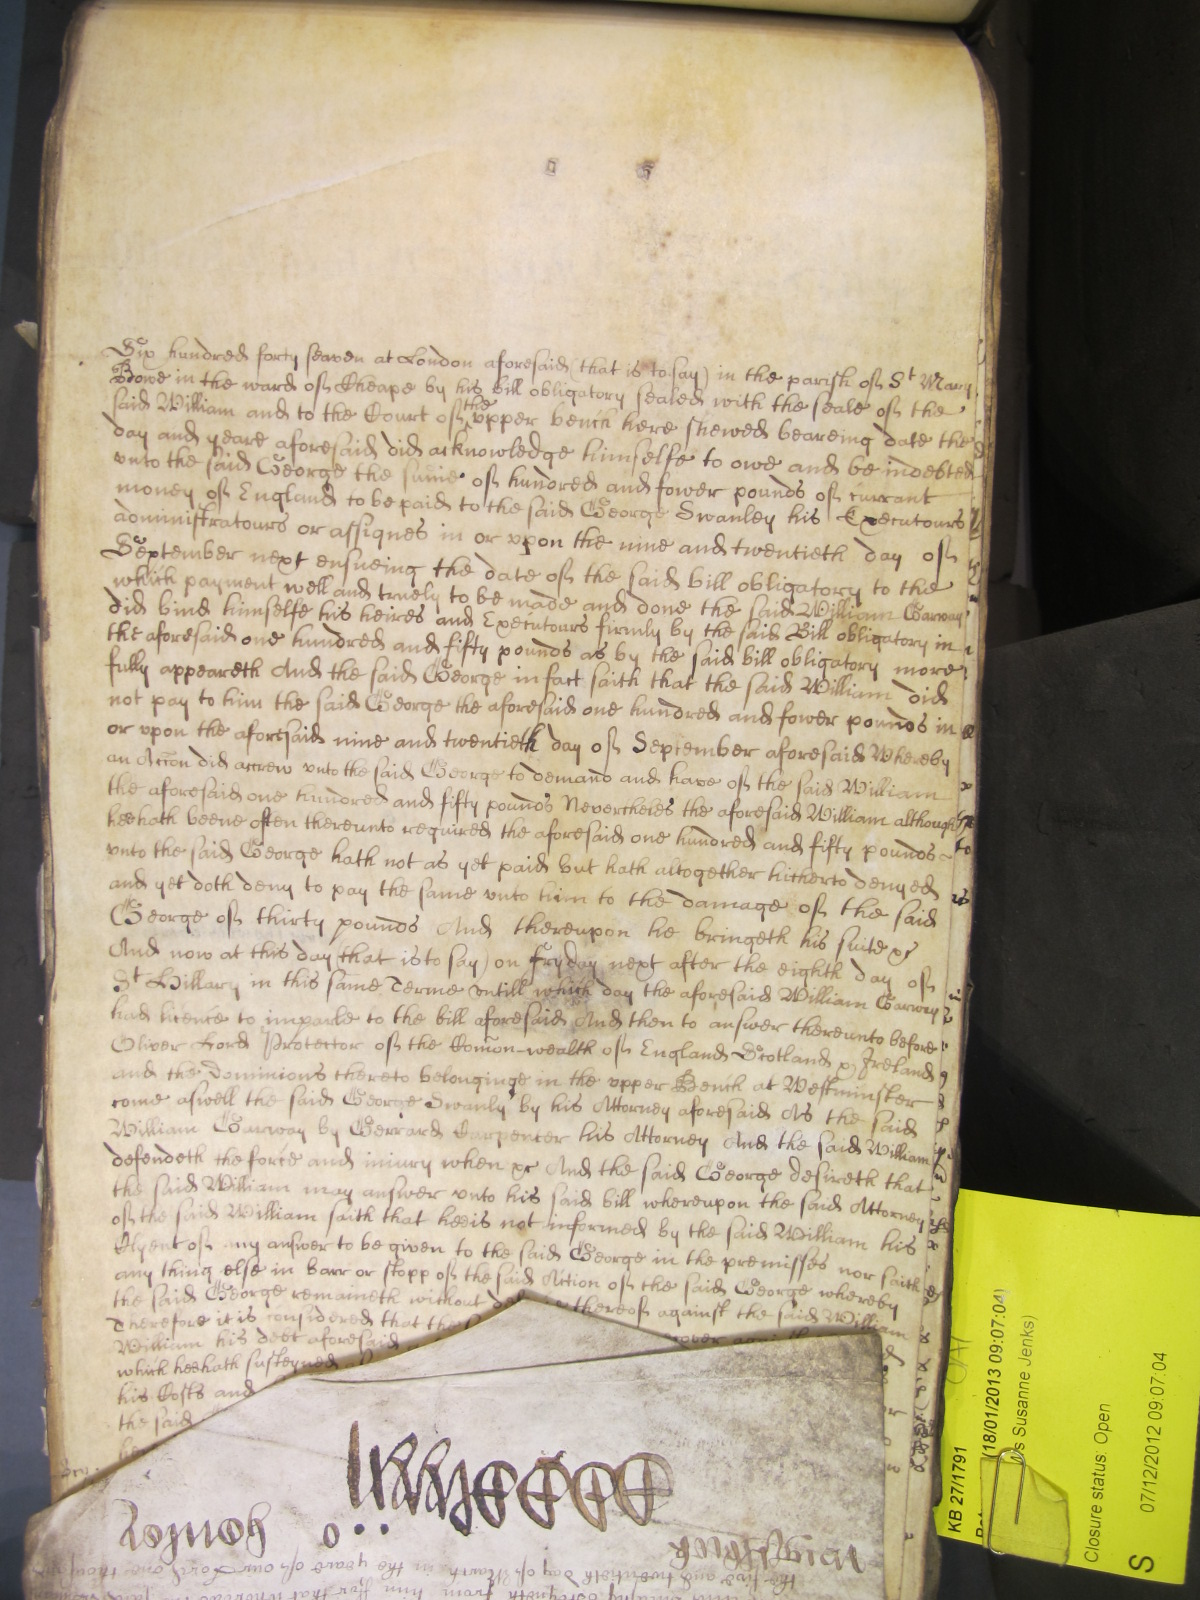 Six hundred forty seaven at London aforesaid (that is to say) in the parish of St Mary
Bowe in the ward of Cheape by his bill obligatory sealed with the seale of the
said William and to the Court of the vpper bench here shewed beareing date the
day and yeare aforesaid did acknowledge himselfe to owe and be indebted
vnto the said George the sume of hundred and fower pounds of currant
money of England to be paid to the said George Swanley his Executours
administratours or assignes in or vpon the nine and twentieth day of
September next ensueing the date of the said bill obligatory to the
which payment well and truely to be made and done the said William Garway
did bind himselfe his heires and Executours firmly by the said Bill obligatory in
the aforesaid one hundred and fifty pounds as by the said bill obligatory more
fully appeareth And the said George in fact saith that the said William did
not pay to him the said George the aforesaid one hundred and fower pounds in
or vpon the aforesaid nine and twentieth day of September aforesaid Whereby
an Accon did accrew vnto the said George to demand and have of the said William
the aforesaid one hundred and fifty pounds Nevertheles the aforesaid William although
hee hath beene often thereunto required the aforesaid one hundred and fifty pounds
vnto the said George hath not as yet paid but hath altogether hitherto denyed
and yet doth deny to pay the same vnto him to the damage of the said
George of thirty pounds And thereupon he bringeth his suite &c
And now at this day (that is to say) on Fryday next after the eighth day of
St Hillary in this same Terme vntill which day the aforesaid William Garway
had licence to imparle to the bill aforesaid And then to answer thereunto before
Oliver Lord Protector of the Comon-wealth of England Scotland & Ireland
and the Dominions thereto belonginge in the vpper Bench at Westminster
come aswell the said George Swanly by his Attorney aforesaid As the said
William Garway by Gerrard Carpenter his Attorney And the said William
defendeth the force and iniury when &c And the said George desireth that
the said William may answer vnto his said bill whereupon the said Attorney
of the said William saith that hee is not informed by the said William his
Clyent of any answer to be given to the said George in the premisses nor saith
any thing else in barr or stopp of the said Action of the said George whereby
the said George remaineth without thereof against the said William
Therefore it is considered that the
William his debt aforesaid
which hee hath susteyned
his Costs and
the said
KB 27/1791
(18/01/2013 09:07:04)
Susanne Jenks)
Closure status: Open
S
07/12/2012 09:07:04